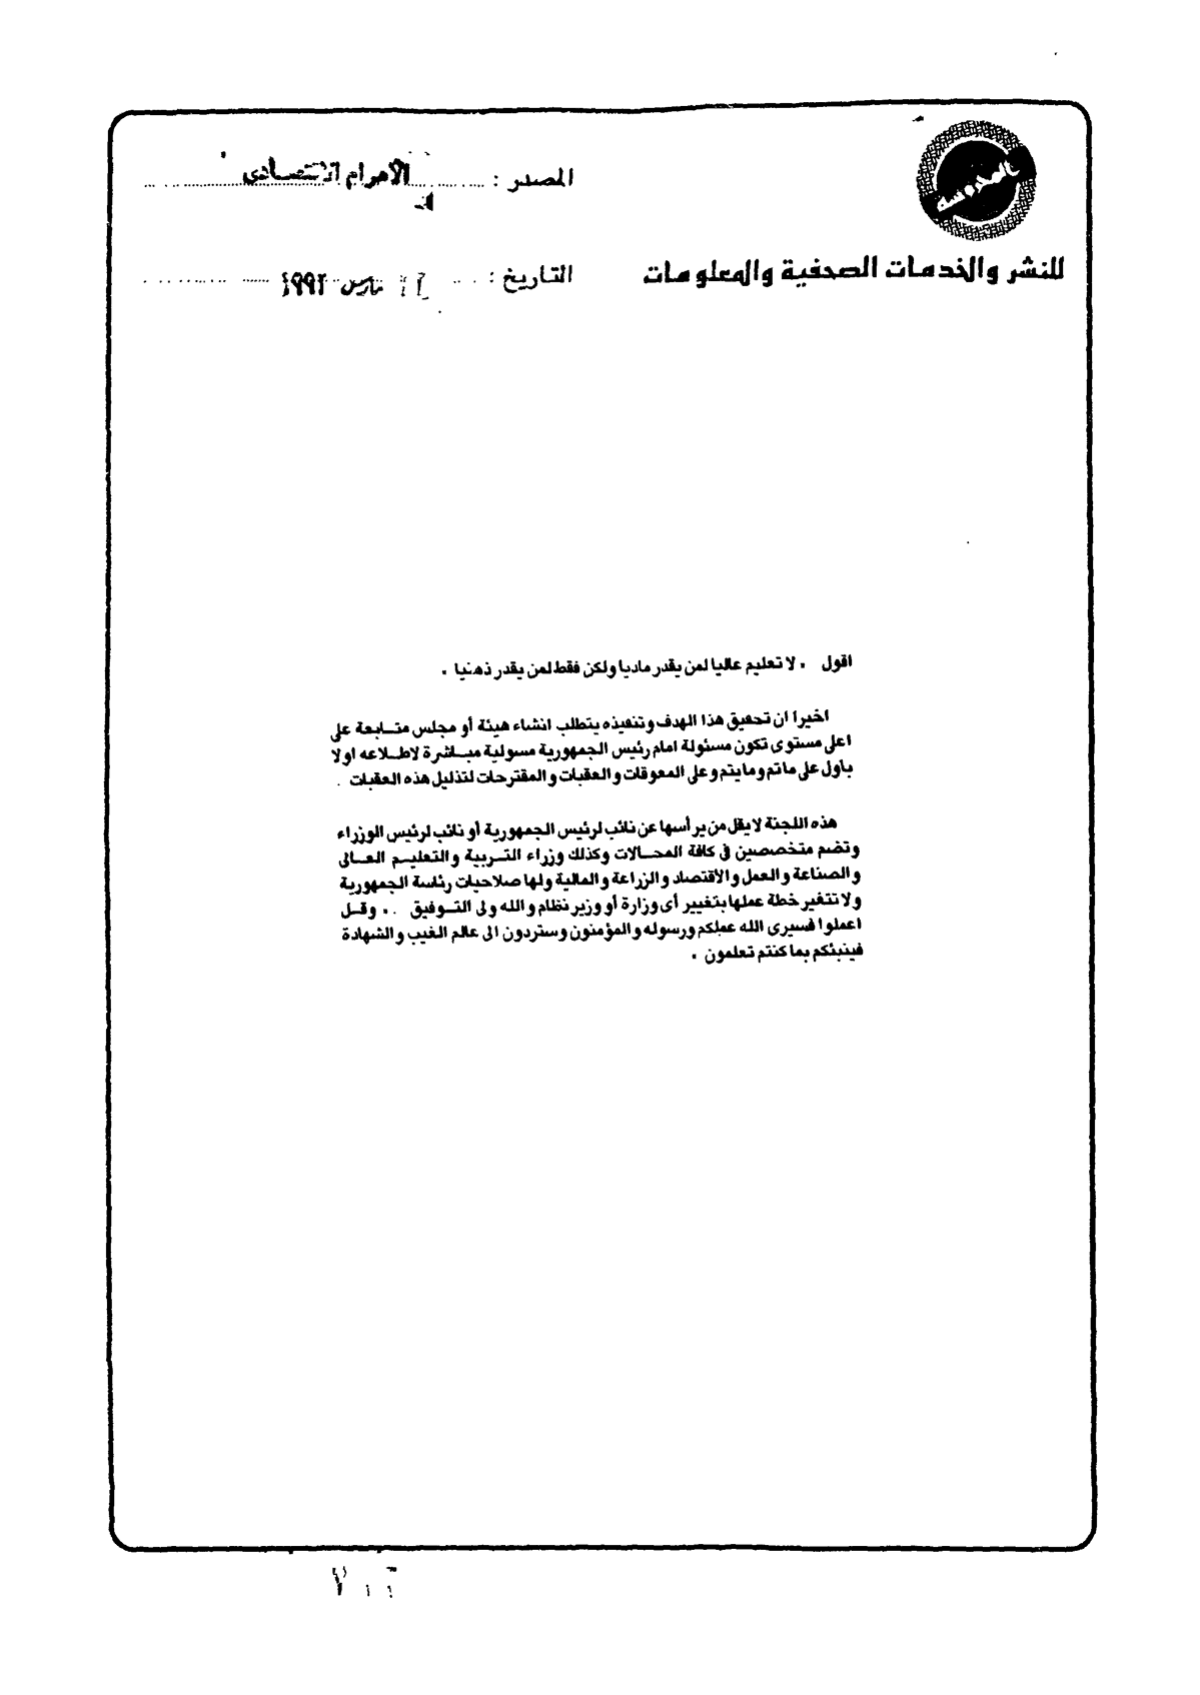 المحروسة
للنشر والخدمات الصحفية والمعلومات
المصدر : الأهرام الاقتصادى
التاريخ : مارس ١٩٩٢
اقول . لا تعليم عاليا لمن يقدر ماديا ولكن فقط لمن يقدر ذهنيا .
اخيرا ان تحقيق هذا الهدف وتنفيذه يتطلب انشاء هيئة أو مجلس متابعة على
اعلى مستوى تكون مسئولة امام رئيس الجمهورية مسولية مباشرة لاطلاعه اولا
باول على ماتم ومايتم وعلى المعوقات والعقبات والمقترحات لتذليل هذه العقبات .
هذه اللجنة لايقل من يرأسها عن نائب لرئيس الجمهورية أو نائب لرئيس الوزراء
وتضم متخصصين فى كافة المجالات وكذلك وزراء التربية والتعليم العالى
والصناعة والعمل والاقتصاد والزراعة والمالية ولها صلاحيات رئاسة الجمهورية
ولا تتغير خطة عملها بتغيير أى وزارة أو وزير نظام والله ولى التوفيق .. وقل
اعملوا فسيرى الله عملكم ورسوله والمؤمنون وستردون الى عالم الغيب والشهادة
فينبئكم بما كنتم تعلمون .